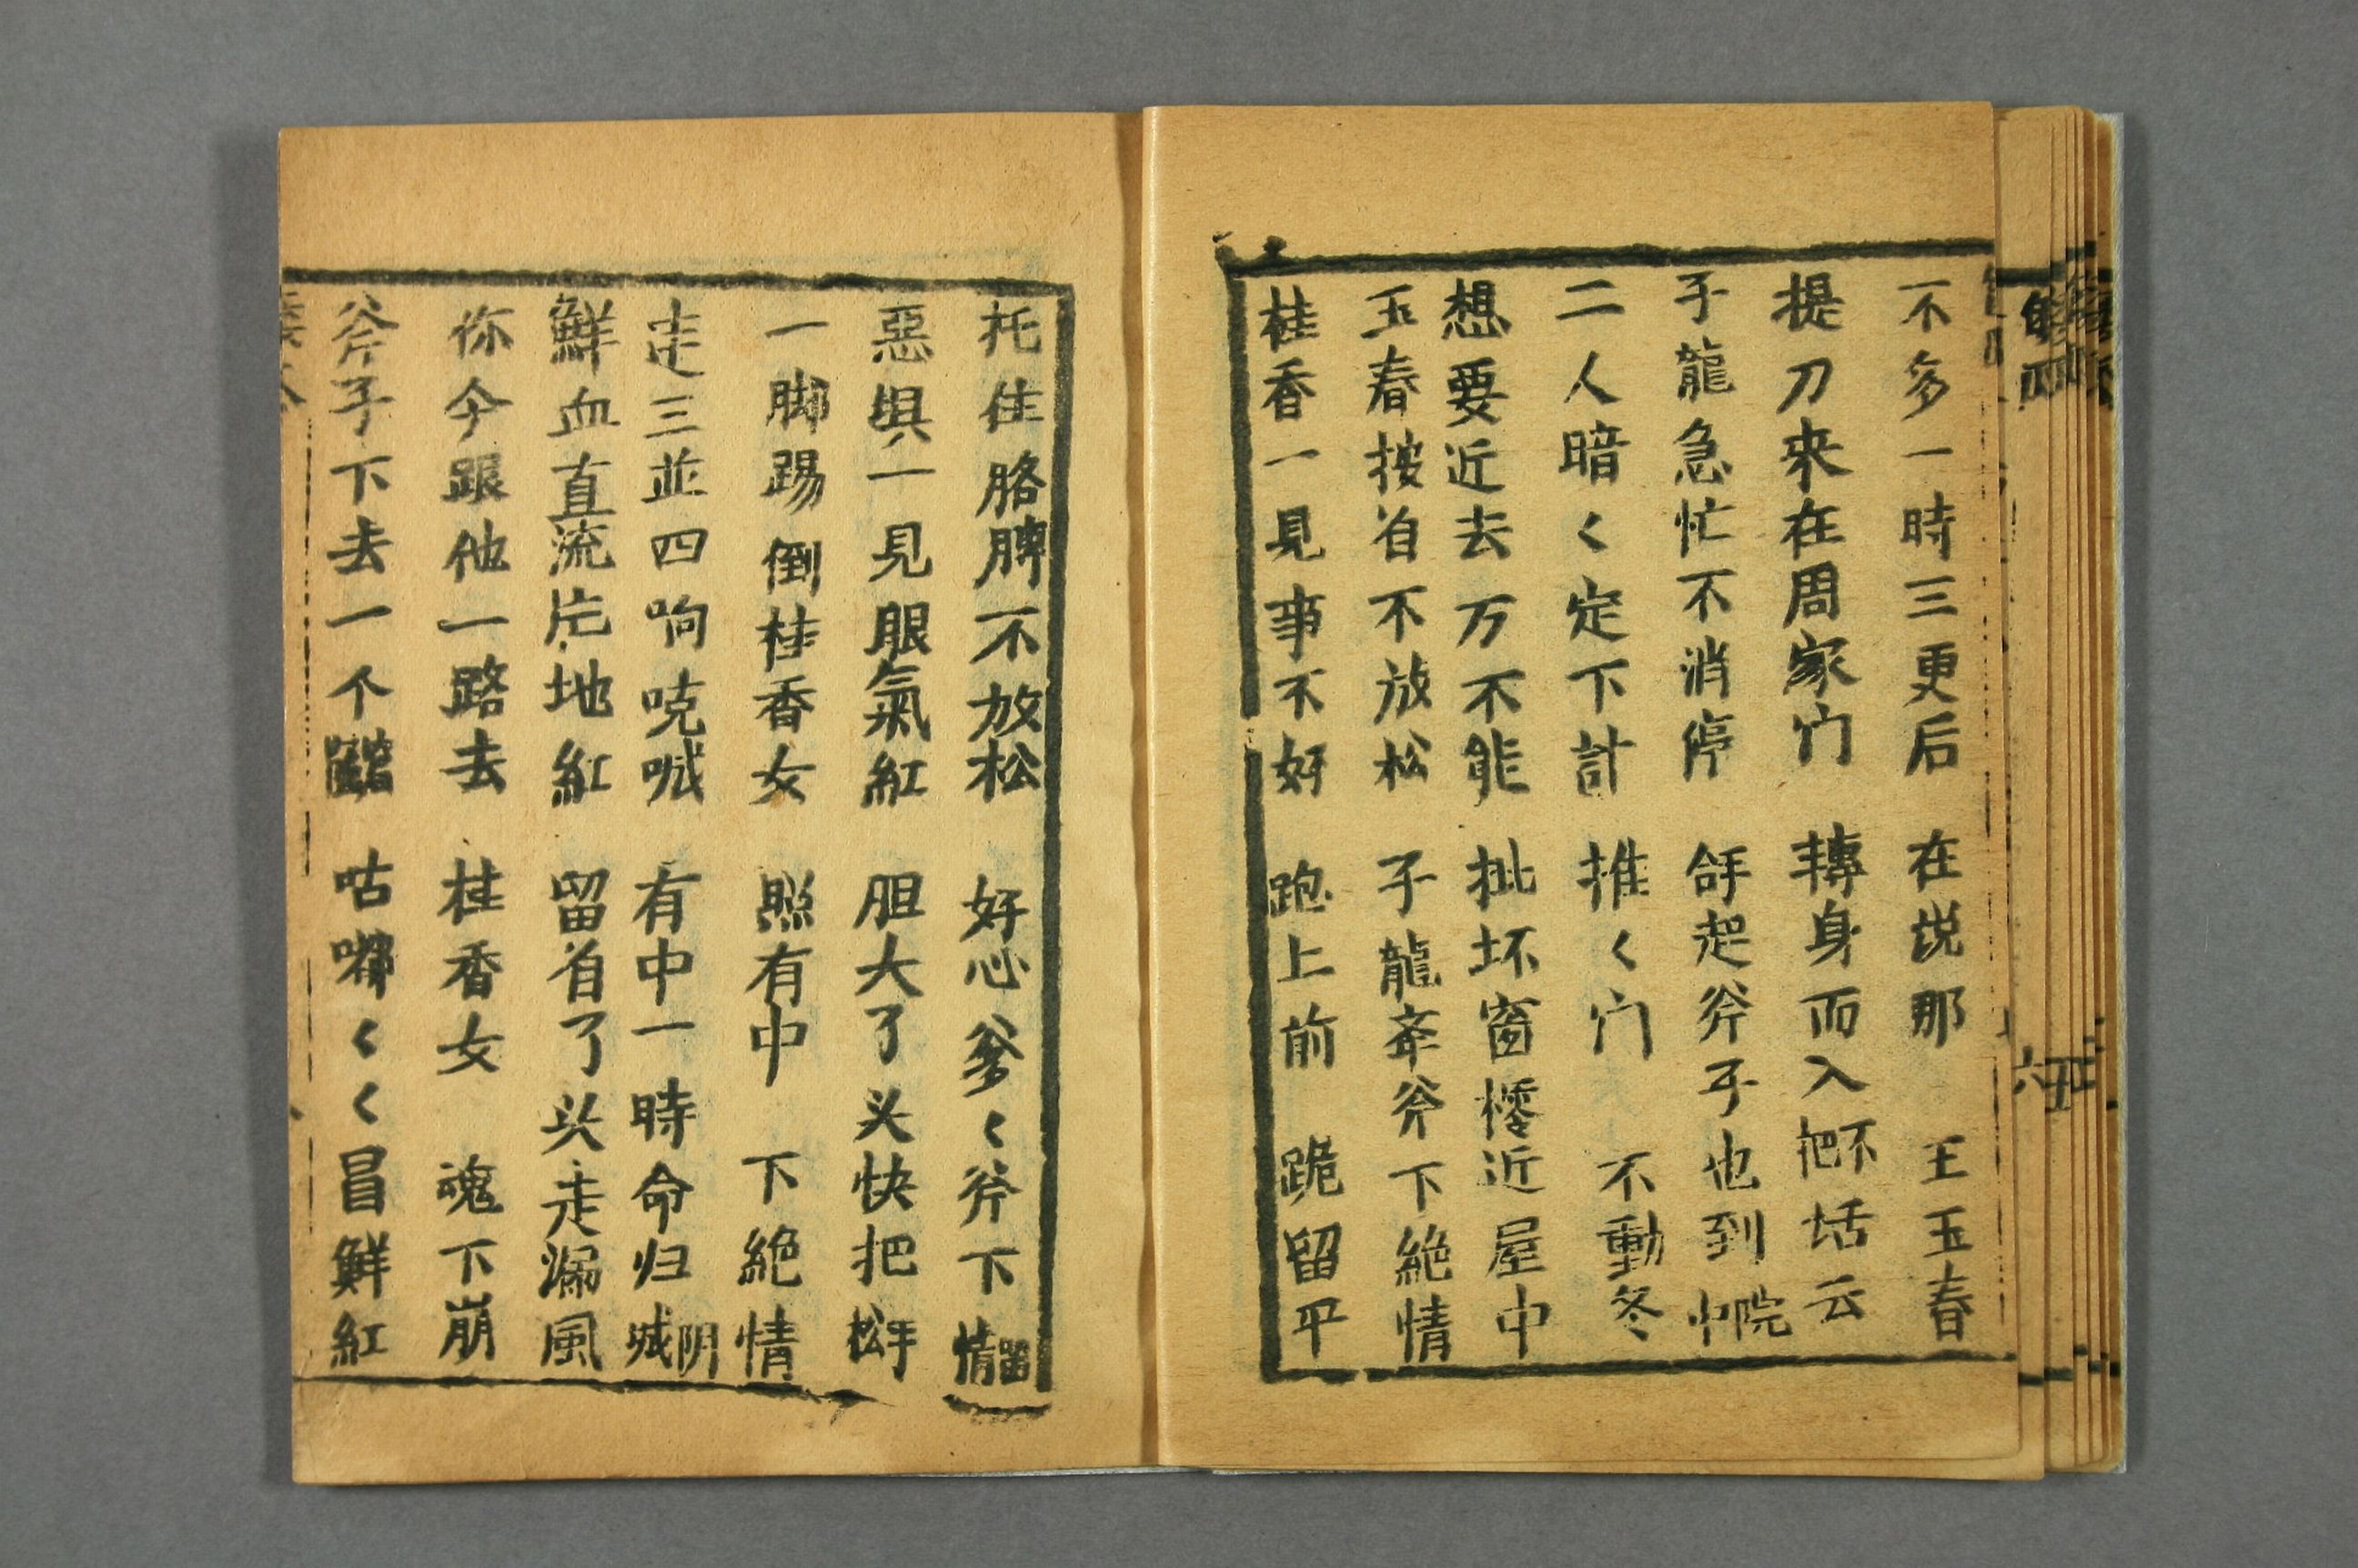 不多一時三更后 在说那 王玉春
提刀來在周家门 轉身而入把不话云
子龍急忙不消停 拿起斧子也到中院
二人暗く定下計 推く门 不動冬
想要近去万不能 批坏窗櫺近屋中
玉春按自不放松 子龍牵斧下絶情
桂香一見事不好 跑上前 跪留平
托住胳膊不放松 好心爹く斧下情留
惡惧一見眼氣紅 胆大了头快把松手
一脚踢倒桂香女 照有中 下絶情
走三並四响吭喊 有中一時命归城阴
鮮血直流片地紅 留自了头走漏風
你今跟他一路去 桂香女 魂下崩
斧子下去一个 咕嘟くく冒鮮紅